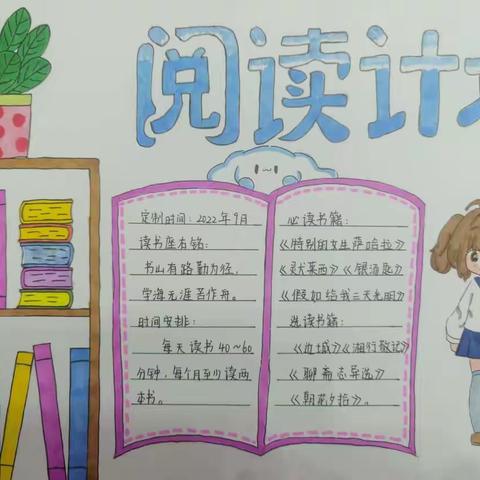 阅读计
定制时间：2022年9月
读书座右铭：
书山有路勤为径，
学海无涯苦作舟。
时间安排：
每天读书40~60
分钟，每个月至少读两
本书。
必读书籍：
《特别的女生萨哈拉》
莱西》《银汤匙》
《假如给我三天光明》
选读书籍：
《边城》《湘行散记》
《聊斋志异选》
《朝花夕拾》。